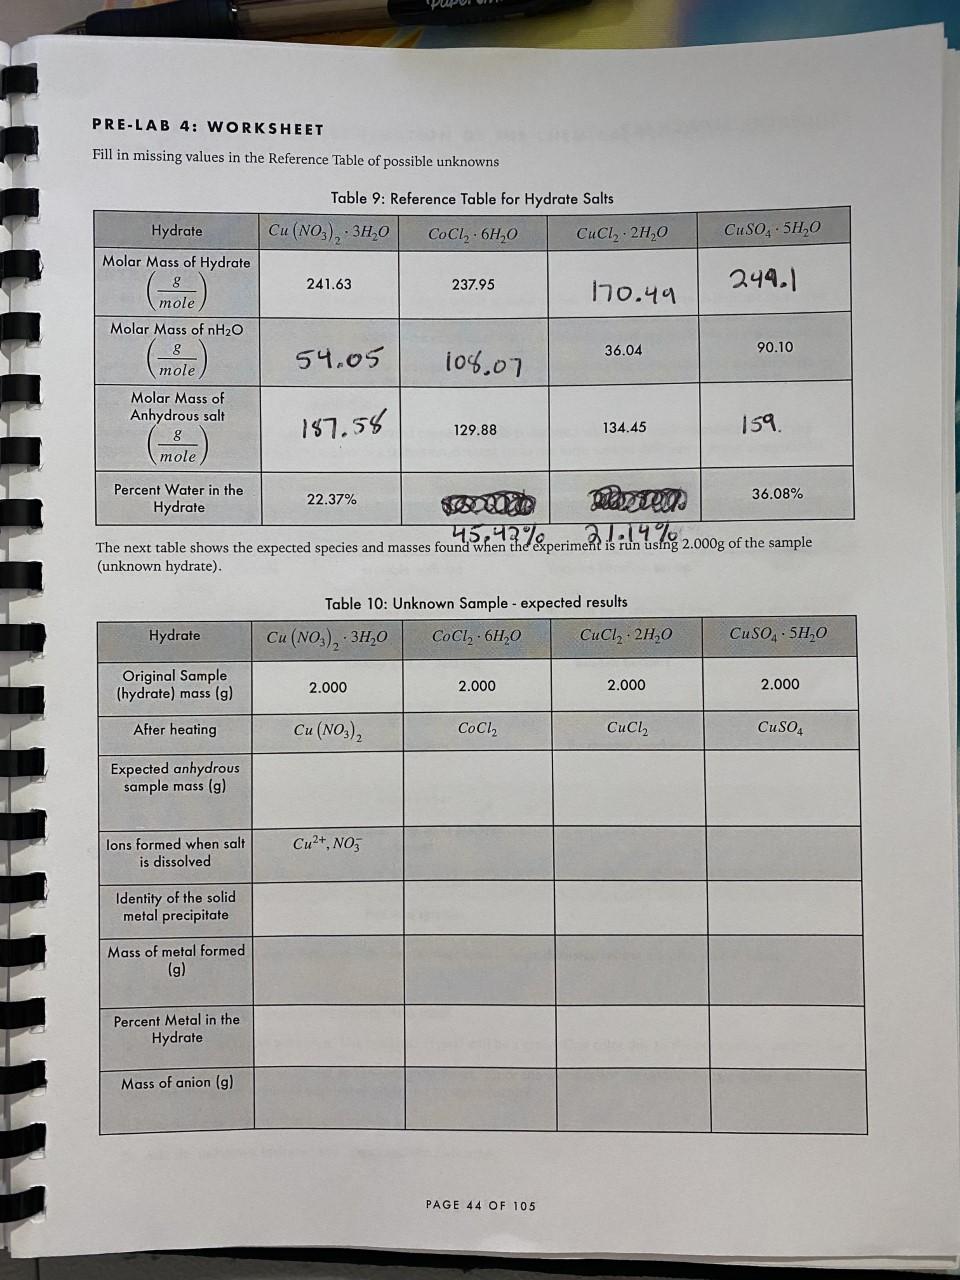 PRE-LAB 4: WORKSHEET
Fill in missing values in the Reference Table of possible unknowns
Table 9: Reference Table for Hydrate Salts
Hydrate Cu(NO₃)₂ · 3H₂O CoCl₂ · 6H₂O CuCl₂ · 2H₂O CuSO₄ · 5H₂O
Molar Mass of Hydrate
(g/mole) 241.63 237.95 170.49 249.1
Molar Mass of nH₂O
(g/mole) 54.05 108.07 36.04 90.10
Molar Mass of
Anhydrous salt
(g/mole) 187.58 129.88 134.45 159.
Percent Water in the
Hydrate 22.37% 45.42% 21.14% 36.08%
The next table shows the expected species and masses found when the experiment is run using 2.000g of the sample
(unknown hydrate).
Table 10: Unknown Sample - expected results
Hydrate Cu(NO₃)₂ · 3H₂O CoCl₂ · 6H₂O CuCl₂ · 2H₂O CuSO₄ · 5H₂O
Original Sample
(hydrate) mass (g) 2.000 2.000 2.000 2.000
After heating Cu(NO₃)₂ CoCl₂ CuCl₂ CuSO₄
Expected anhydrous
sample mass (g)
Ions formed when salt
is dissolved Cu²⁺, NO₃⁻
Identity of the solid
metal precipitate
Mass of metal formed
(g)
Percent Metal in the
Hydrate
Mass of anion (g)
PAGE 44 OF 105